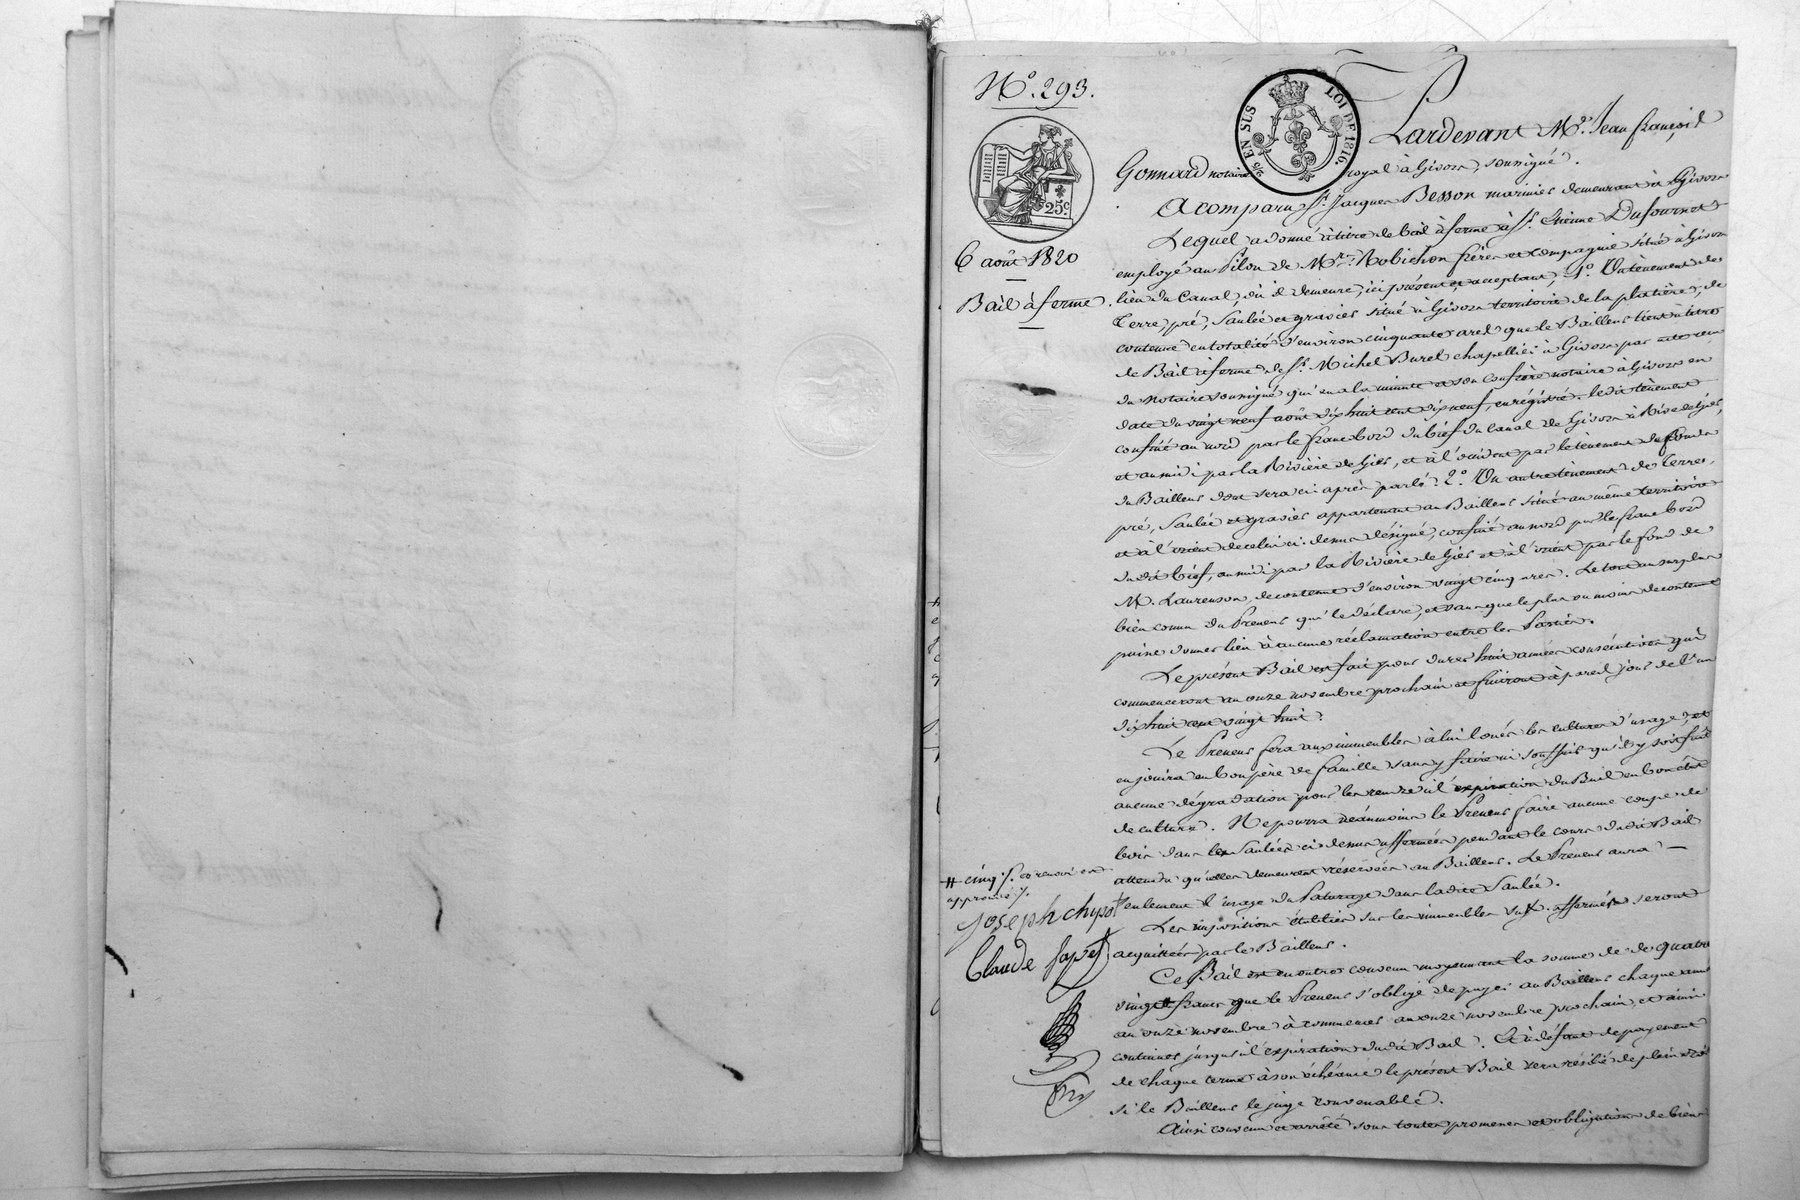 N.º 293.
25.c
6 août 1820
Bail à ferme.
2/5 EN SUS
LOI DE 1816.
Pardevant M.e Jean françois
Gonnard notaire royal à Givors, soussigné.
A comparu S.r Jacques Besson marinier demeurant à Givors
Lequel a donné à titre de bail à ferme à S.r Etienne Dufournet
employé au Pilon de M.rs Robichon frères et compagnie situé à Givors
lieu du Canal, où il demeure, ici présent et acceptant, 1.º Un tènement de
Terre, pré, Saulée et gravier situé à Givors territoire de la platière, de
contenue en totalité d'environ cinquante ares que le Bailleur tient à titre
de Bail à ferme de S.r Michel Burel chapellier à Givors par acte reçu
du notaire soussigné qui en a la minute et son confrère notaire à Givors en
date du vingt neuf août dix huit cent dix neuf, enrégistré. ledit tènement
confiné au nord par le franc bord du bief du Canal de Givors à Rive de Gier,
et au midi par la Rivière de Gier, et à l'occident par le tènement du fonds
du Bailleur dont sera ci après parlé; 2.º Un autre tènement de Terre,
pré, Saulée et gravier appartenant au Bailleur situé au même territoire
et à l'orient de celui ci-dessus désigné, confiné au nord par le franc bord
dudit bief, au midi par la Rivière de Gier et à l'orient par le fond de
M. Laurenson, de contenue d'environ vingt cinq ares. Le tout au surplus
bien connu du Preneur qui le déclare, et sans que le plus ou moins de contenue
puisse donner lieu à aucune réclamation entre les Parties.
Le présent Bail est fait pour durer huit années consécutives qui
commenceront au onze novembre prochain et finiront à pareil jour de l'an
dix huit cent vingt huit.
Le Preneur fera aux immeubles à lui loués les cultures d'usage, et
en jouira en bon père de famille sans y faire ni souffrir qu'il y soit fait
aucune dégradation pour les rendre à l'expiration du Bail en bon état
de culture. Ne pourra néanmoins le Preneur faire aucune coupe de
bois dans les Saulées ci dessus affermées pendant le cours dudit Bail
attendu qu'elles demeurent réservées au Bailleur. Le Preneur aura
seulement l'usage du Paturage dans ladite Saulée.
Les impositions établies sur les immeubles affermés seront
acquittées par le Bailleur.
Ce Bail est en outre convenu moyennant la somme de de quatre
vingt francs que le Preneur s'oblige de payer au Bailleur chaque année
au onze novembre à commencer au onze novembre prochain, et ainsi
continuer jusqu'à l'expiration dudit Bail. Et à défaut de payement
de chaque terme à son échéance le présent Bail sera résilié de plein droit
si le Bailleur le juge convenable.
Ainsi convenu et arrêté sous toutes promesses et obligations de biens
# cinq /. ce renvoi est
approuvé /.
Joseph chypot
Claude